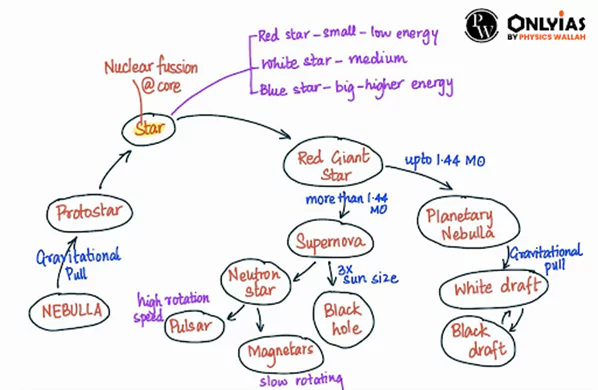 PW ONLYIAS
BY PHYSICS WALLAH
Red star - small - low energy
White star - medium
Blue star - big - higher energy
Nuclear fussion
@ core
Star
Red Giant
Star
upto 1.44 M⊙
more than 1.44
M⊙
Protostar
Gravitational
Pull
NEBULLA
Planetary
Nebulla
Supernova
Gravitational
pull
3x
sun size
Neutron
star
White draft
high rotation
speed
Pulsar
Black
hole
Black
draft
Magnetars
slow rotating